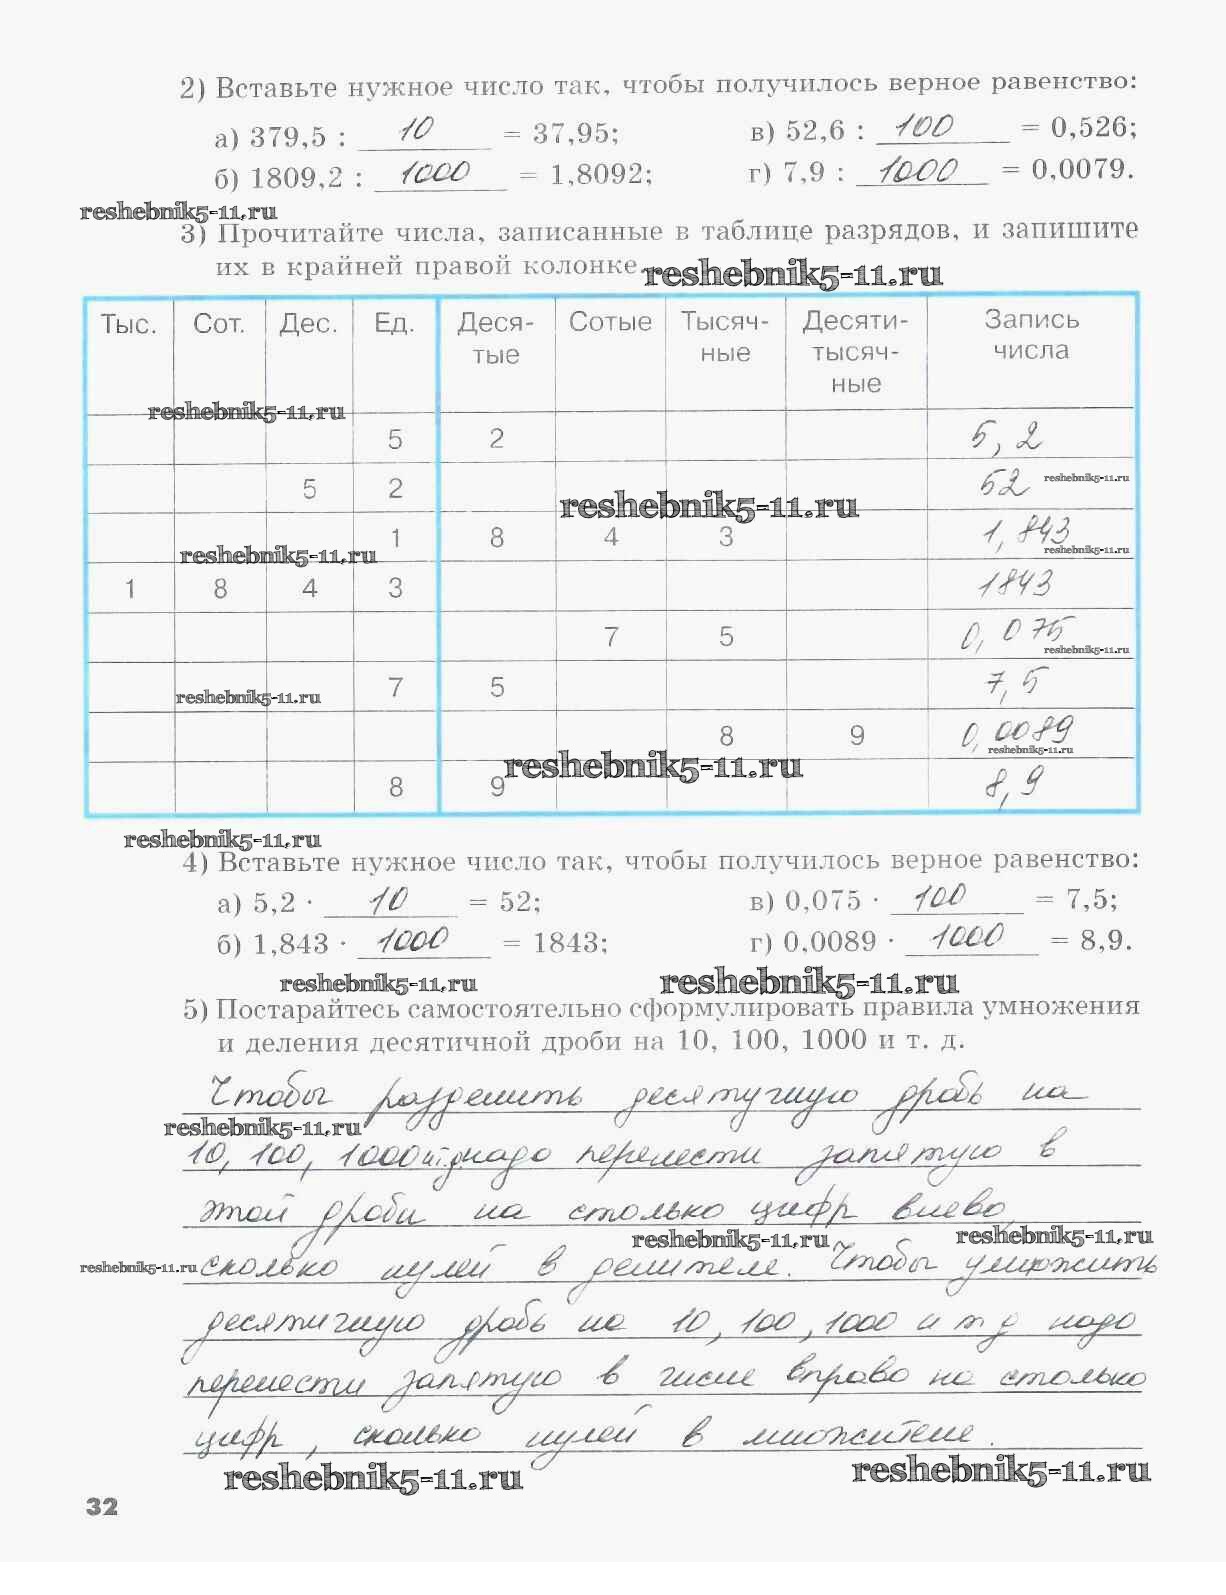 2) Вставьте нужное число так, чтобы получилось верное равенство:
а) 379,5 : 10 = 37,95; в) 52,6 : 100 = 0,526;
б) 1809,2 : 1000 = 1,8092; г) 7,9 : 1000 = 0,0079.
reshebnik5-11.ru
3) Прочитайте числа, записанные в таблице разрядов, и запишите
их в крайней правой колонке. reshebnik5-11.ru
Тыс. Сот. Дес. Ед. Деся- Сотые Тысяч- Десяти- Запись
тые ные тысяч- числа
ные
reshebnik5-11.ru
5 2 5,2
5 2 52 reshebnik5-11.ru
reshebnik5-11.ru
1 8 4 3 1,843
reshebnik5-11.ru reshebnik5-11.ru
1 8 4 3 1843
7 5 0,075
reshebnik5-11.ru
7 5 7,5
reshebnik5-11.ru
8 9 0,0089
reshebnik5-11.ru
reshebnik5-11.ru
8 9 8,9
reshebnik5-11.ru
4) Вставьте нужное число так, чтобы получилось верное равенство:
а) 5,2 · 10 = 52; в) 0,075 · 100 = 7,5;
б) 1,843 · 1000 = 1843; г) 0,0089 · 1000 = 8,9.
reshebnik5-11.ru reshebnik5-11.ru
5) Постарайтесь самостоятельно сформулировать правила умножения
и деления десятичной дроби на 10, 100, 1000 и т. д.
Чтобы разделить десятичную дробь на
reshebnik5-11.ru
10, 100, 1000 и т.д надо перенести запятую в
этой дроби на столько цифр влево,
reshebnik5-11.ru reshebnik5-11.ru
reshebnik5-11.ru сколько нулей в делителе. Чтобы умножить
десятичную дробь на 10, 100, 1000 и т д надо
перенести запятую в числе вправо на столько
цифр, сколько нулей в множителе.
reshebnik5-11.ru reshebnik5-11.ru
32